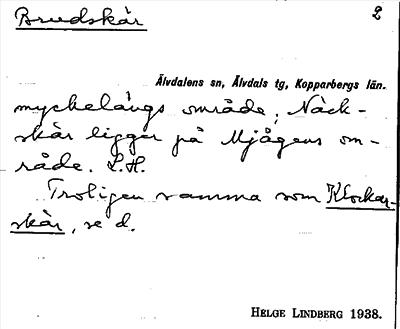 Brudskär 2
Älvdalens sn, Älvdals tg, Kopparbergs län.
myckelängs område; Näck-
skär ligger på Mjågens om-
råde. L.H.
Troligen samma som Klockar-
skär, se d.
HELGE LINDBERG 1938.